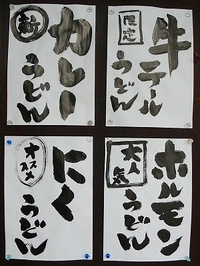 牛テール
うどん
限定
カレー
うどん
新
ホルモン
うどん
大人気
にく
うどん
オススメ